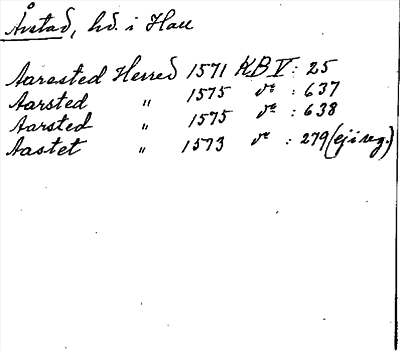 Årstad, hd. i Hall
Aarested Herred 1571 KB V : 25
Aarsted " 1575 ve : 637
Aarsted " 1575 ve : 638
Aastet " 1573 ve : 279 (ej i reg.)